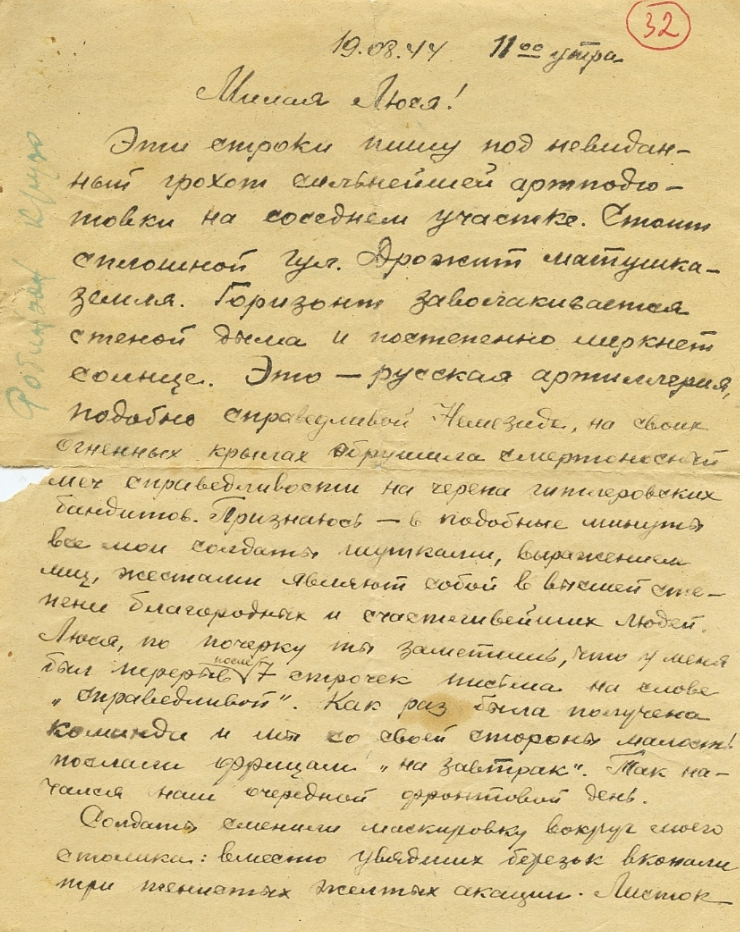 32
19.08.44 11⁰⁰ утра
Милая Люся!
Эти строки пишу под невидан-
ный грохот сильнейшей артподго-
товки на соседнем участке. Стоит
сплошной гул. Дрожит матушка-
земля. Горизонт заволакивается
стеной дыма и постепенно меркнет
солнце. Это — русская артиллерия,
подобно справедливой Немезиде, на своих
огненных крылах обрушила смертоносный
меч справедливости на черепа гитлеровских
бандитов. Признаюсь — в подобные минуты
все мои солдаты шутками, выражением
лиц, жестами являют собой в высшей сте-
пени благородных и счастливейших людей.
Люся, по почерку ты заметишь, что у меня
был перерыв после 7 строчек письма на слове
„справедливой". Как раз была получена
команда и мы со своей стороны малость
послали фрицам „на завтрак". Так на-
чался наш очередной фронтовой день.
Солдаты сменили маскировку вокруг моего
столика: вместо увядших березок вкопали
три желтых акации. Листок